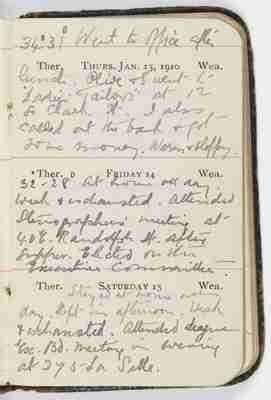 34°31 Went to office after
Ther. THURS. JAN. 13, 1910 Wea.
lunch. Olive & I went to
"Ladies' Tailors" at 12
So. Clark St. I also
called at the bank & got
some money. Warm & sloppy.
Ther. 0 FRIDAY 14 Wea.
32-28 At home all day.
Weak & exhausted. Attended
Stenographers' meeting at
40 E. Randolph St. after
supper. Elected on the
Executive Committee.
Ther. SATURDAY 15 Wea.
Stayed at home every
day. Slept in afternoon. Weak
& exhausted. Attended League
Ex. Bd. meeting in evening
at 275 La Salle.